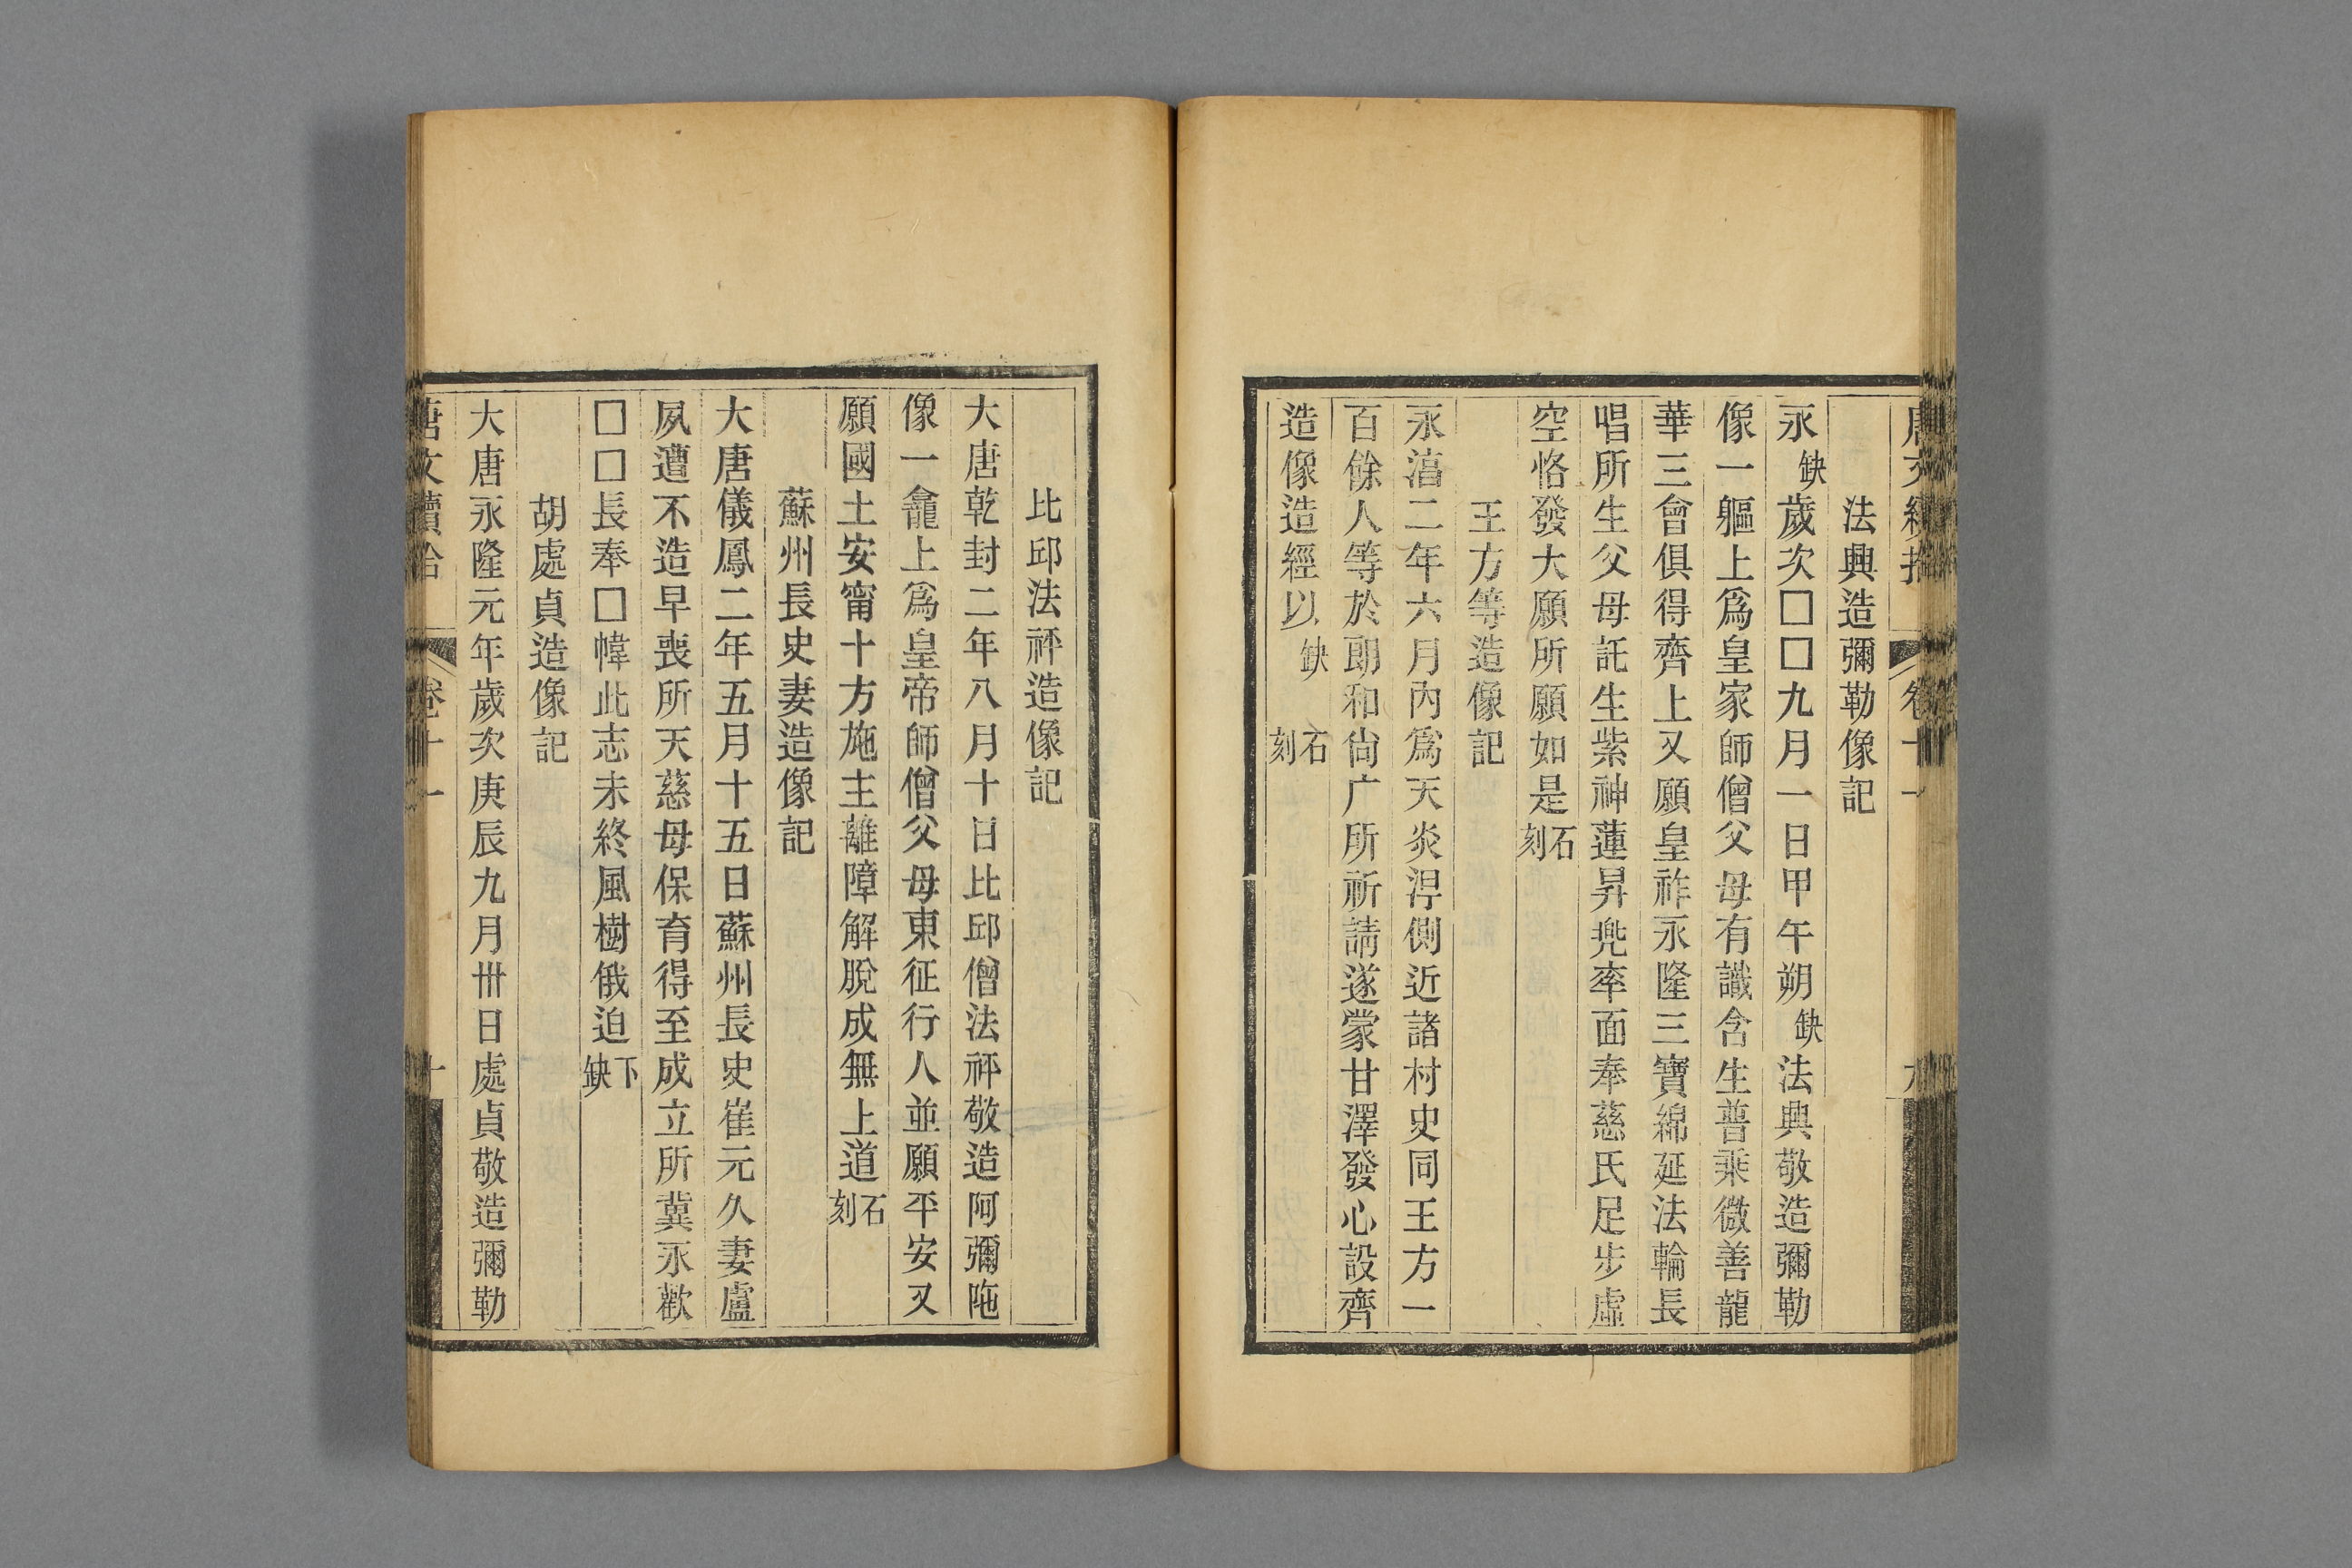 法興造彌勒像記
永缺歲次□□九月一日甲午朔缺法興敬造彌勒
像一軀上爲皇家師僧父母有識含生普乘微善龍
華三會俱得齊上又願皇祚永隆三寶綿延法輪長
唱所生父母託生紫神蓮昇兠率面奉慈氏足步虛
空恪發大願所願如是石刻
王方等造像記
永湻二年六月內爲天炎㵎側近諸村史同王方一
百餘人等於郞和尙广所祈請遂蒙甘澤發心設齊
造像造經以缺石刻
比邱法祘造像記
大唐乾封二年八月十日比邱僧法祘敬造阿彌陁
像一龕上爲皇帝師僧父母東征行人並願平安又
願國土安甯十方施主離障解脫成無上道石刻
蘇州長史妻造像記
大唐儀鳳二年五月十五日蘇州長史崔元久妻盧
夙遭不造早喪所天慈母保育得至成立所冀永歡
□□長奉□幃此志未終風樹俄迫下缺
胡處貞造像記
大唐永隆元年歲次庚辰九月卅日處貞敬造彌勒
唐文續拾 卷十一 十